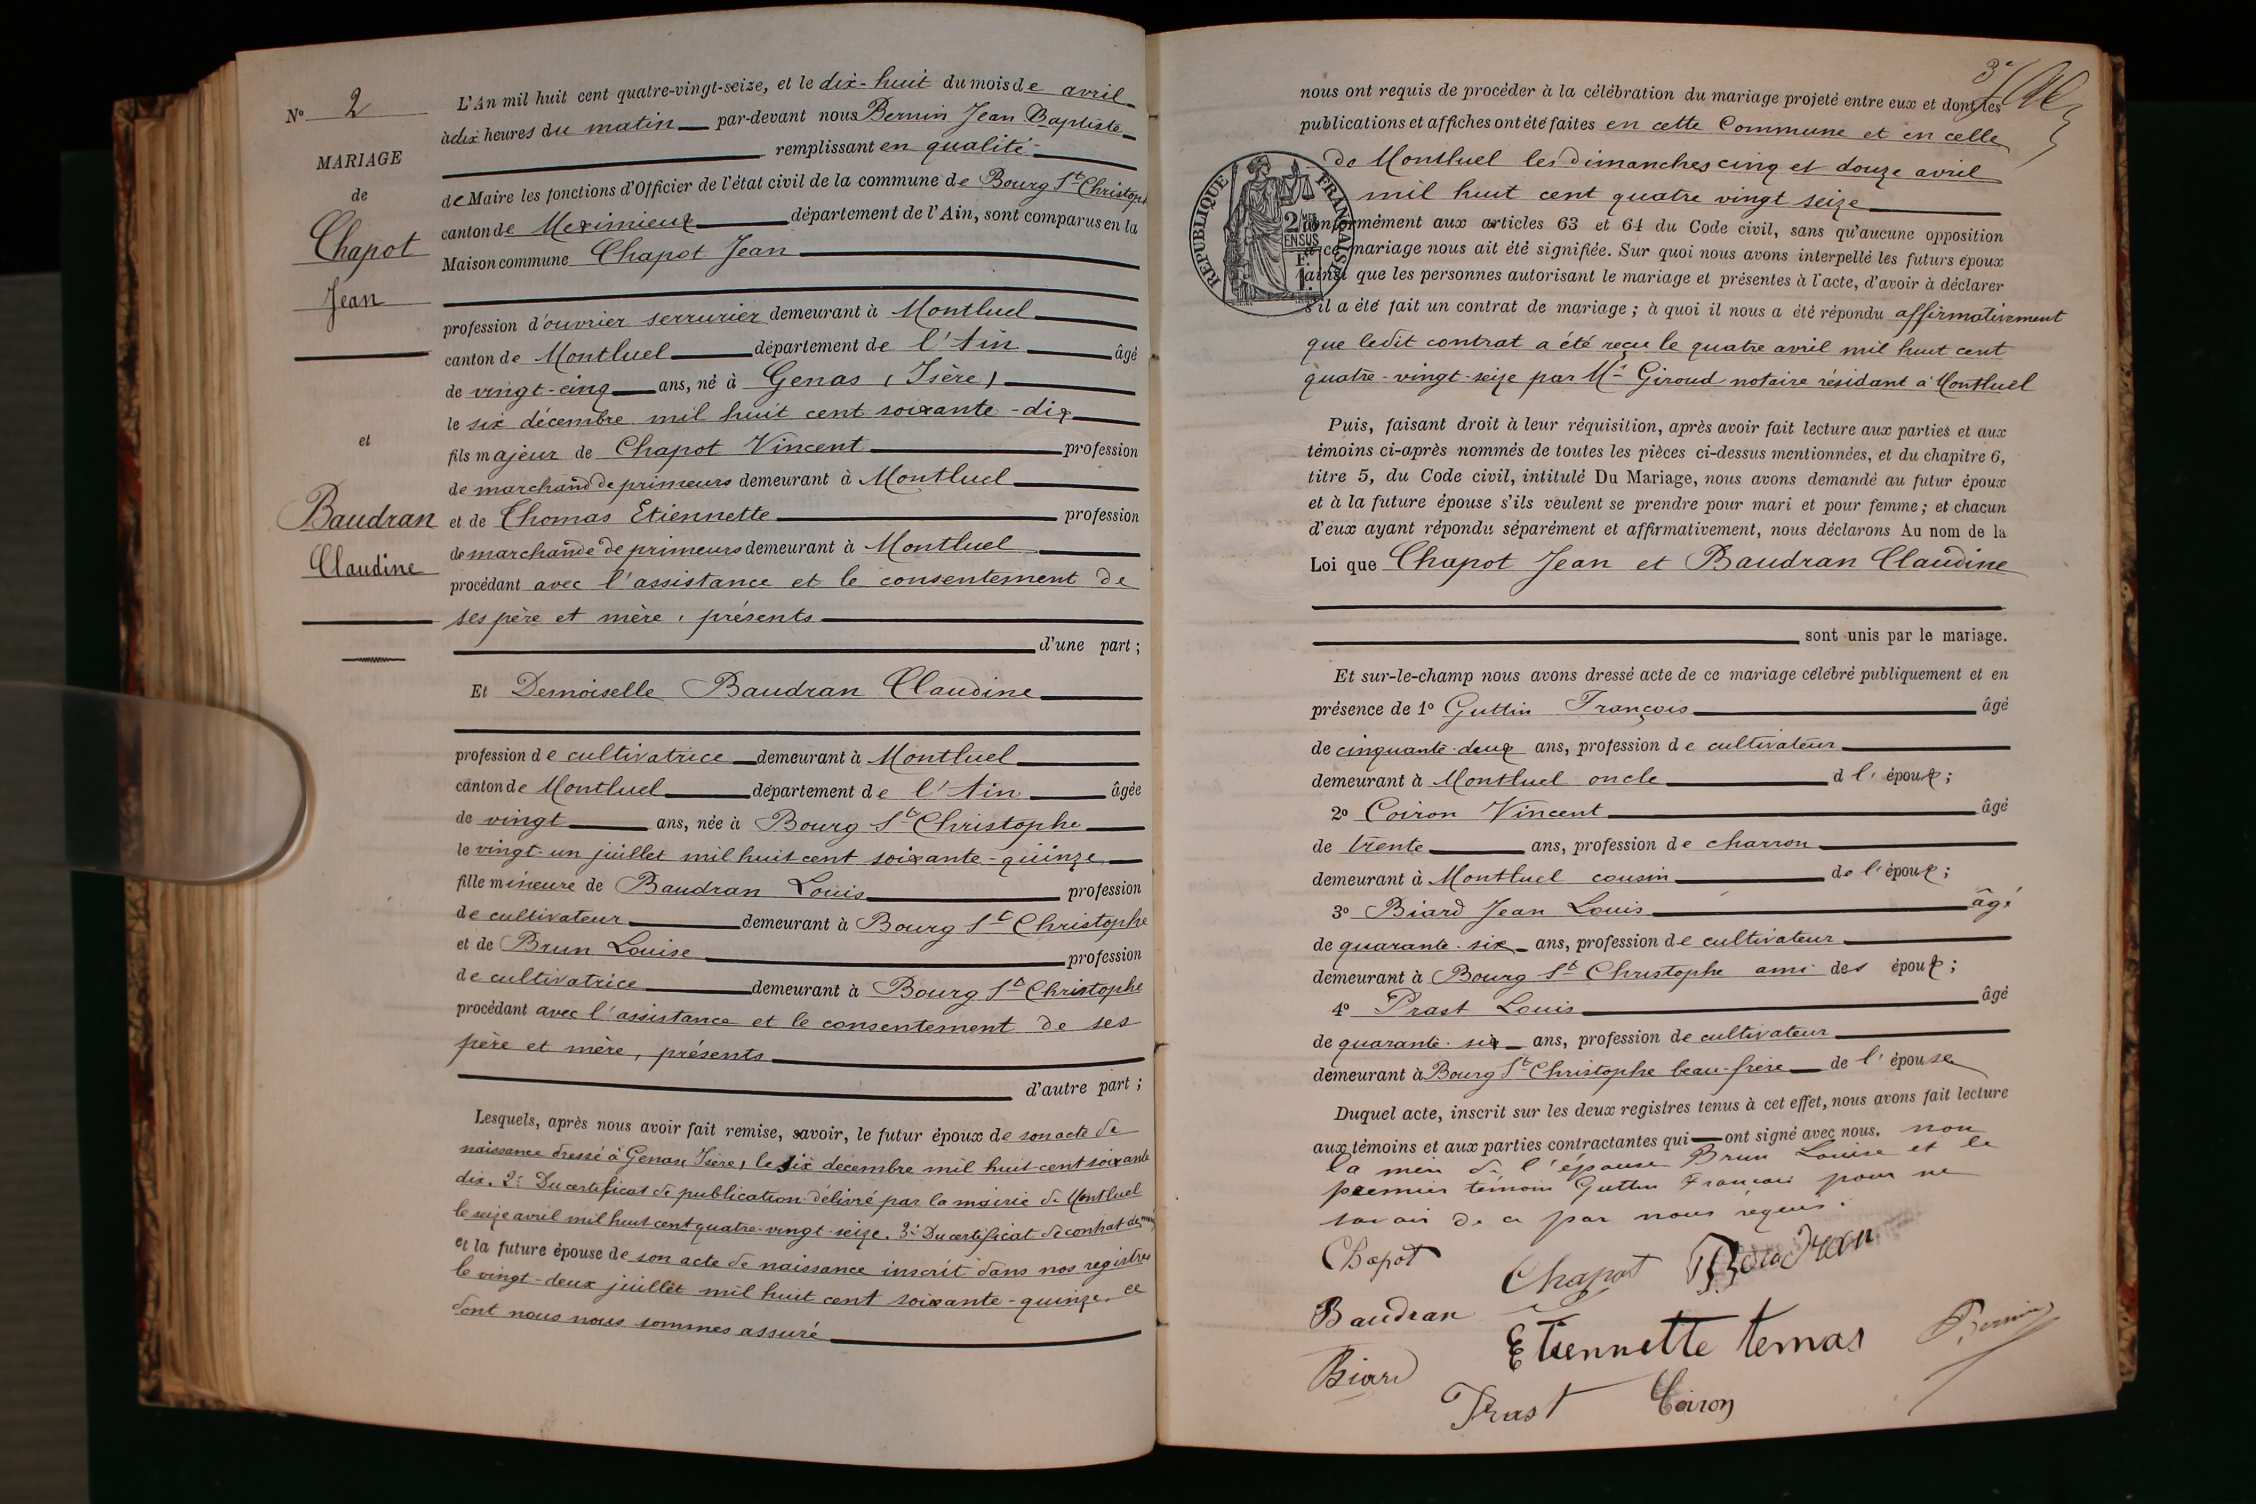 N° 2
MARIAGE
de
Chapot
Jean
et
Baudran
Claudine
L'An mil huit cent quatre-vingt-seize, et le dix-huit du mois de avril
à dix heures du matin par-devant nous Bernin Jean Baptiste
remplissant en qualité
de Maire les fonctions d'Officier de l'état civil de la commune de Bourg St Christoph
canton de Meximieux département de l'Ain, sont comparus en la
Maison commune Chapot Jean
profession d'ouvrier serrurier demeurant à Montluel
canton de Montluel département de l'Ain âgé
de vingt-cinq ans, né à Genas (Isère)
le six décembre mil huit cent soixante-dix
fils majeur de Chapot Vincent profession
de marchand de primeurs demeurant à Montluel
et de Thomas Etiennette profession
de marchande de primeurs demeurant à Montluel
procédant avec l'assistance et le consentement de
ses père et mère, présents
d'une part ;
Et Demoiselle Baudran Claudine
profession de cultivatrice demeurant à Montluel
canton de Montluel département de l'Ain âgée
de vingt ans, née à Bourg St Christophe
le vingt-un juillet mil huit cent soixante-quinze
fille mineure de Baudran Louis profession
de cultivateur demeurant à Bourg St Christophe
et de Brun Louise profession
de cultivatrice demeurant à Bourg St Christophe
procédant avec l'assistance et le consentement de ses
père et mère, présents
d'autre part ;
Lesquels, après nous avoir fait remise, savoir, le futur époux de son acte de
naissance dressé à Genas, Isère, le six décembre mil huit cent soixante
dix. 2° Du certificat de publication délivré par la mairie de Montluel
le seize avril mil huit cent quatre-vingt-seize. 3° Du certificat de contrat de
et la future épouse de son acte de naissance inscrit dans nos registres
le vingt-deux juillet mil huit cent soixante-quinze. ce
dont nous nous sommes assuré
3e
nous ont requis de procéder à la célébration du mariage projeté entre eux et dont les
publications et affiches ont été faites en cette Commune et en celle
de Montluel les dimanches cinq et douze avril
mil huit cent quatre vingt seize
RÉPUBLIQUE FRANÇAISE
2/10 EN SUS
F.
1.
conformément aux articles 63 et 64 du Code civil, sans qu'aucune opposition
à ce mariage nous ait été signifiée. Sur quoi nous avons interpellé les futurs époux
ainsi que les personnes autorisant le mariage et présentes à l'acte, d'avoir à déclarer
s'il a été fait un contrat de mariage ; à quoi il nous a été répondu affirmativement
que ledit contrat a été reçu le quatre avril mil huit cent
quatre-vingt-seize par Me Giroud notaire résidant à Montluel
Puis, faisant droit à leur réquisition, après avoir fait lecture aux parties et aux
témoins ci-après nommés de toutes les pièces ci-dessus mentionnées, et du chapitre 6,
titre 5, du Code civil, intitulé Du Mariage, nous avons demandé au futur époux
et à la future épouse s'ils veulent se prendre pour mari et pour femme ; et chacun
d'eux ayant répondu séparément et affirmativement, nous déclarons Au nom de la
Loi que Chapot Jean et Baudran Claudine
sont unis par le mariage.
Et sur-le-champ nous avons dressé acte de ce mariage célébré publiquement et en
présence de 1° Guttin François âgé
de cinquante-deux ans, profession de cultivateur
demeurant à Montluel oncle d l'époux ;
2° Coiron Vincent âgé
de trente ans, profession de charron
demeurant à Montluel cousin de l'époux ;
3° Biard Jean Louis âgé
de quarante-six ans, profession de cultivateur
demeurant à Bourg St Christophe ami des époux ;
4° Prast Louis âgé
de quarante-six ans, profession de cultivateur
demeurant à Bourg St Christophe beau-frère de l'épouse
Duquel acte, inscrit sur les deux registres tenus à cet effet, nous avons fait lecture
aux témoins et aux parties contractantes qui ont signé avec nous. non
la mère de l'épouse Brun Louise et le
premier témoin Guttin François pour ne
savoir de ce par nous requis.
Chapot
Chapot
Baudran
Baudran
Etiennette temas
Bernin
Biard
Prast
Coiron